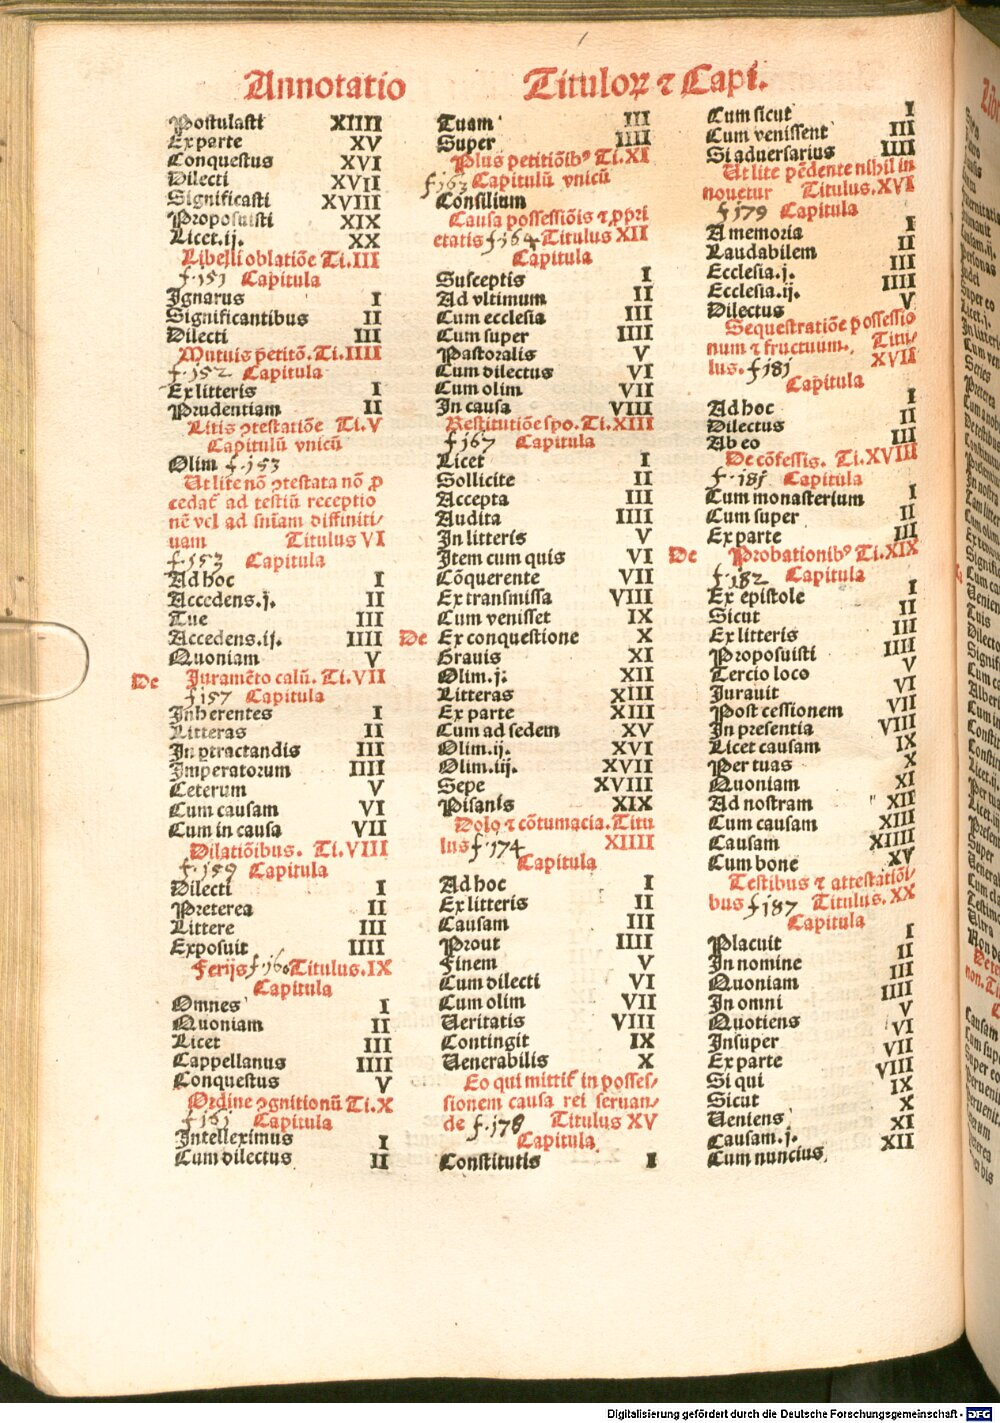 Annotatio Titulorꝝ ⁊ Capi.
Postulasti XIIII
Ex parte XV
Conquestus XVI
Dilecti XVII
Significasti XVIII
Proposuisti XIX
Licet.ij. XX
Libelli oblatiōe Ti.III
f.151 Capitula
Ignarus I
Significantibus II
Dilecti III
Mutuis petitō.Ti.IIII
f.152 Capitula
Ex litteris I
Prudentiam II
Litis ꝯtestatiōe Ti.V
Capitulū vnicū
Olim f.153
Ut lite nō ꝯtestata nō ꝓ
cedat̄ ad testiū receptio
nē vel ad sn̄iam diffiniti/
uam Titulus VI
f.153 Capitula
Ad hoc I
Accedens.j. II
Tue III
Accedens.ij. IIII
Quoniam V
De Juramēto calū. Ti.VII
f.157 Capitula
Inherentes I
Litteras II
In ꝑtractandis III
Imperatorum IIII
Ceterum V
Cum causam VI
Cum in causa VII
Dilatiōibus. Ti.VIII
f.159 Capitula
Dilecti I
Preterea II
Littere III
Exposuit IIII
Ferijs f.160 Titulus.IX
Capitula
Omnes I
Quoniam II
Licet III
Cappellanus IIII
Conquestus V
Ordine ꝯgnitionū Ti.X
f161 Capitula
Intelleximus I
Cum dilectus II
Tuam III
Super IIII
Plus petitiōibꝰ Ti.XI
f163 Capitulū vnicū
Consilium
Causa possessiōis ⁊ ꝓpri
etatis f.164 Titulus XII
Capitula
Susceptis I
Ad vltimum II
Cum ecclesia III
Cum super IIII
Pastoralis V
Cum dilectus VI
Cum olim VII
In causa VIII
Restitutiōe spo.Ti.XIII
f167 Capitula
Licet I
Sollicite II
Accepta III
Audita IIII
In litteris V
Item cum quis VI
Cōquerente VII
Ex transmissa VIII
Cum venisset IX
De Ex conquestione X
Grauis XI
Olim.j. XII
Litteras XIII
Ex parte XIII
Cum ad sedem XV
Olim.ij. XVI
Olim.iij. XVII
Sepe XVIII
Pisanis XIX
Dolo ⁊ cōtumacia.Titu
lus f.174 XIIII
Capitula
Ad hoc I
Ex litteris II
Causam III
Prout IIII
Finem V
Cum dilecti VI
Cum olim VII
Ueritatis VIII
Contingit IX
Uenerabilis X
Eo qui mittit̄ in posses/
sionem causa rei seruan/
de f.178 Titulus XV
Capitula
Constitutis I
Cum sicut I
Cum venissent III
Si aduersarius IIII
Ut lite pēdente nihil in
nouetur Titulus.XVI
f179 Capitula
A memoria I
Laudabilem II
Ecclesia.j. III
Ecclesia.ij. IIII
Dilectus V
Sequestratiōe possessio
num ⁊ fructuum. Titu/
lus. f181 XVII
Capitula
Ad hoc I
Dilectus II
Ab eo III
De cōfessis. Ti.XVIII
f.181 Capitula
Cum monasterium I
Cum super II
Ex parte III
De Probationibꝰ Ti.XIX
f.182 Capitula
Ex epistole I
Sicut II
Ex litteris III
Proposuisti IIII
Tercio loco V
Jurauit VI
Post cessionem VII
In presentia VIII
Licet causam IX
Per tuas X
Quoniam XI
Ad nostram XII
Cum causam XIII
Causam XIIII
Cum bone XV
Testibus ⁊ attestatiōi/
bus f187 Titulus.XX
Capitula
Placuit I
In nomine II
Quoniam III
In omni IIII
Quotiens V
Insuper VI
Ex parte VII
Si qui VIII
Sicut IX
Ueniens X
Causam.j. XI
Cum nuncius XII
Digitalisierung gefördert durch die Deutsche Forschungsgemeinschaft - DFG